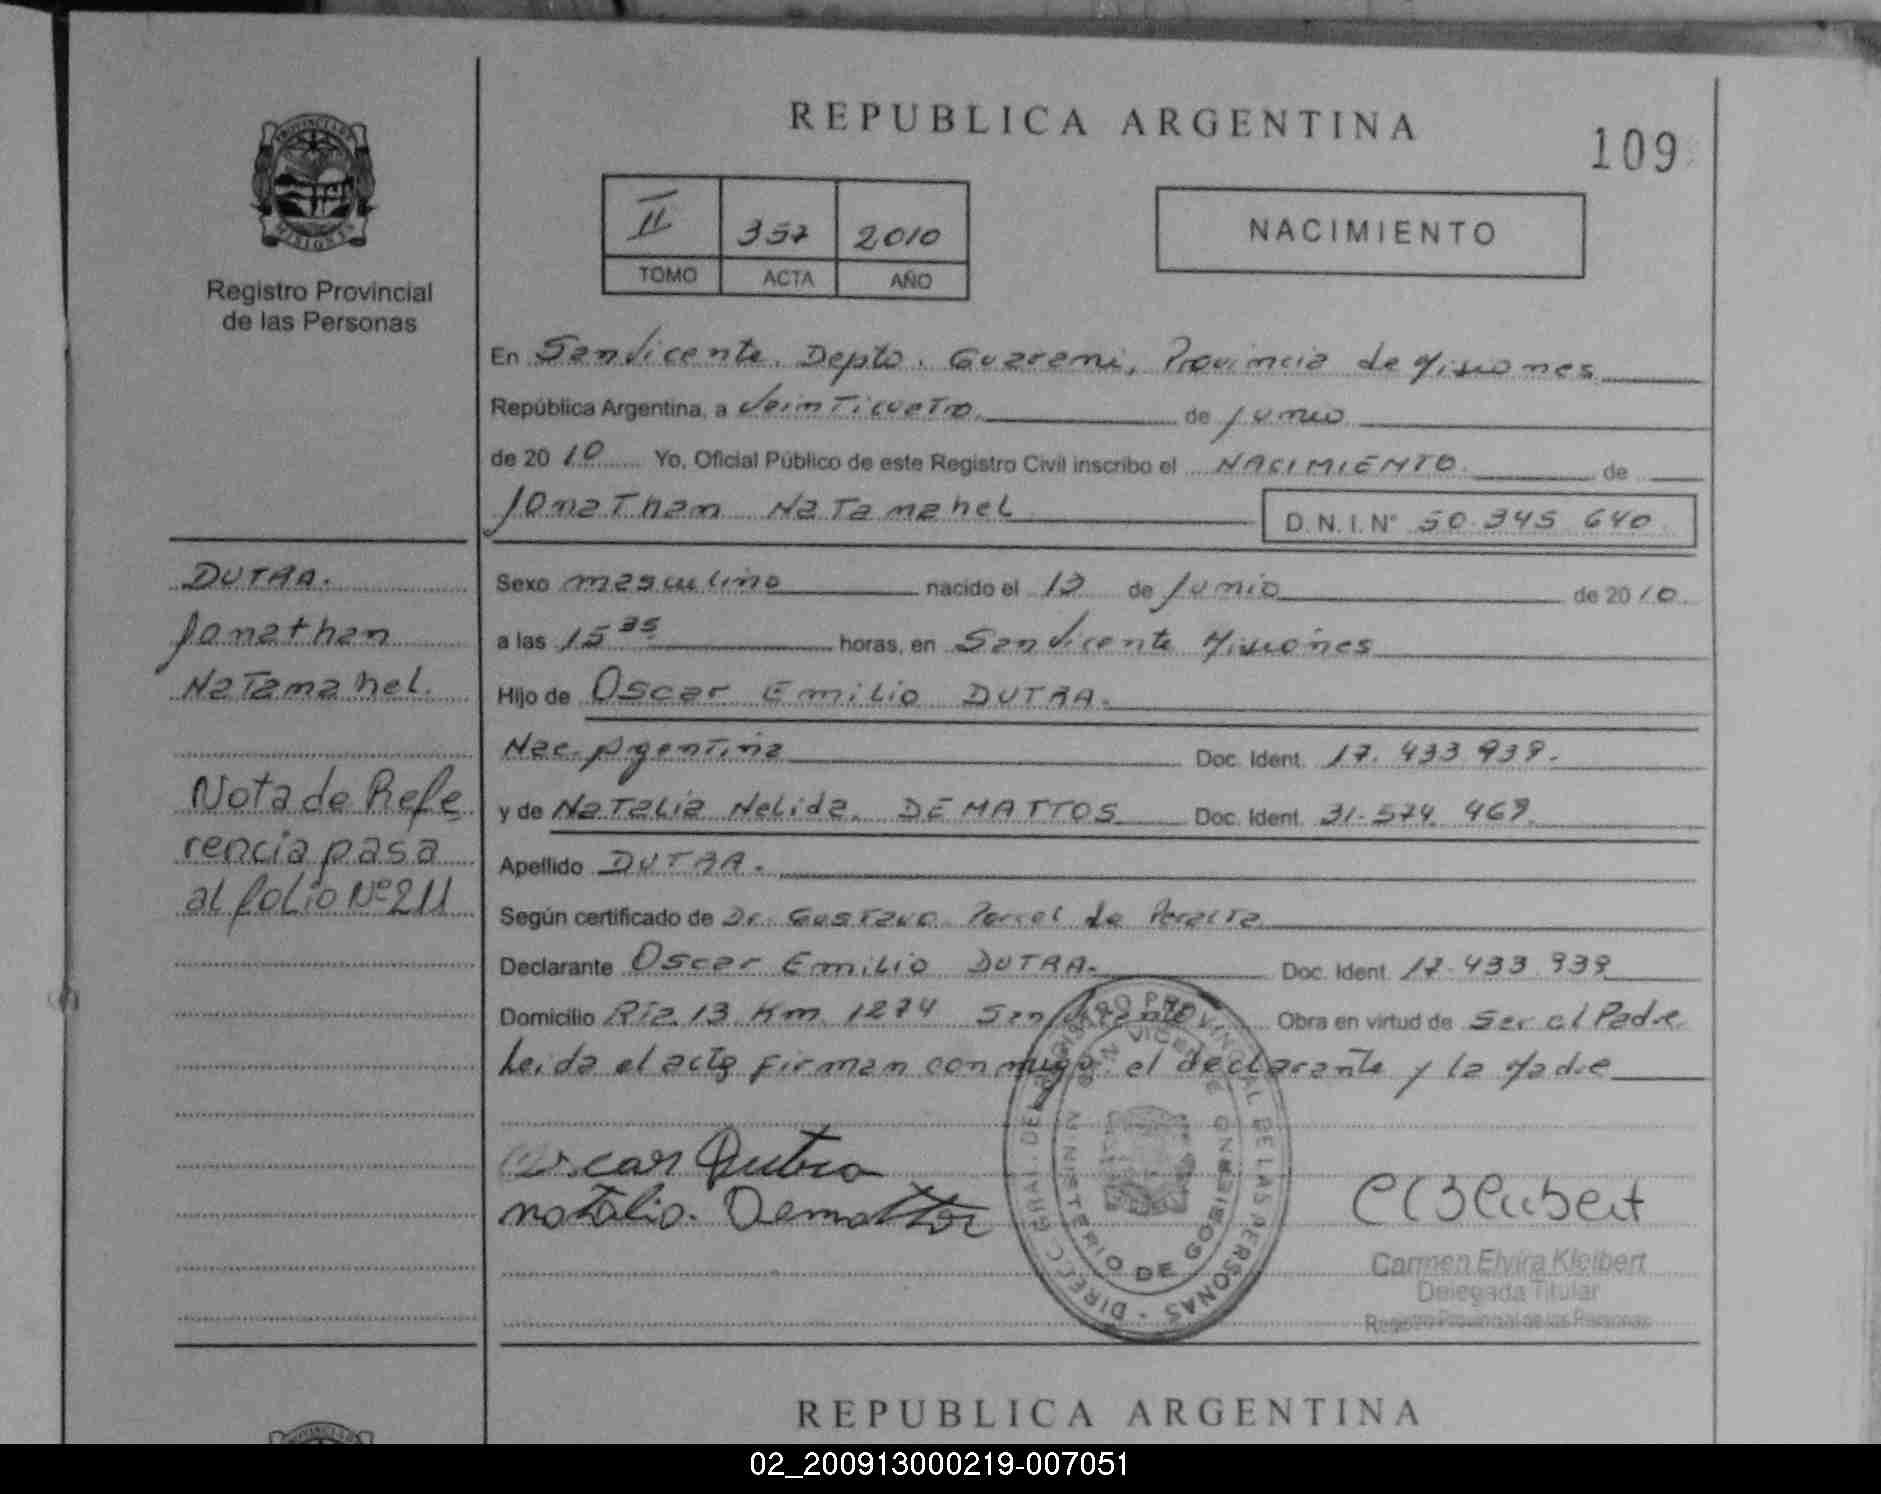 REPUBLICA ARGENTINA
109
PROVINCIA DE MISIONES
Registro Provincial
de las Personas
II 357 2010
TOMO ACTA AÑO
NACIMIENTO
En San Vicente, Depto. Guarani, Provincia de Misiones
República Argentina, a Veinticuatro de junio
de 2010 Yo, Oficial Público de este Registro Civil inscribo el NACIMIENTO de
Jonathan Natamahel
D.N.I. N° 50.345 640
DUTRA.
Jonathan
Natamahel.
Nota de Refe
rencia pasa
al folio Nº 211
Sexo masculino nacido el 12 de Junio de 2010
a las 15 35 horas, en San Vicente Misiones
Hijo de Oscar Emilio DUTRA.
Nac. Argentina Doc. Ident. 17. 433 939.
y de Natalia Nelida. DE MATTOS Doc. Ident. 31.574 469
Apellido DUTRA.
Según certificado de Dr. Gustavo Porcel de Peralta
Declarante Oscar Emilio DUTRA. Doc. Ident. 17.433 939
Domicilio Rta 13 Km 1274 San Vicente Obra en virtud de Ser el Padre
Leida el acta firman conmigo el declarante y la Madre
Oscar Dutra
natalia. Demattos
DIRECC. GRAL. DEL REGISTRO PROVINCIAL DE LAS PERSONAS -
SAN VICENTE
MINISTERIO DE GOBIERNO
Carmen Elvira Kleibert
Delegada Titular
Registro Provincial de las Personas
REPUBLICA ARGENTINA
02_200913000219-007051